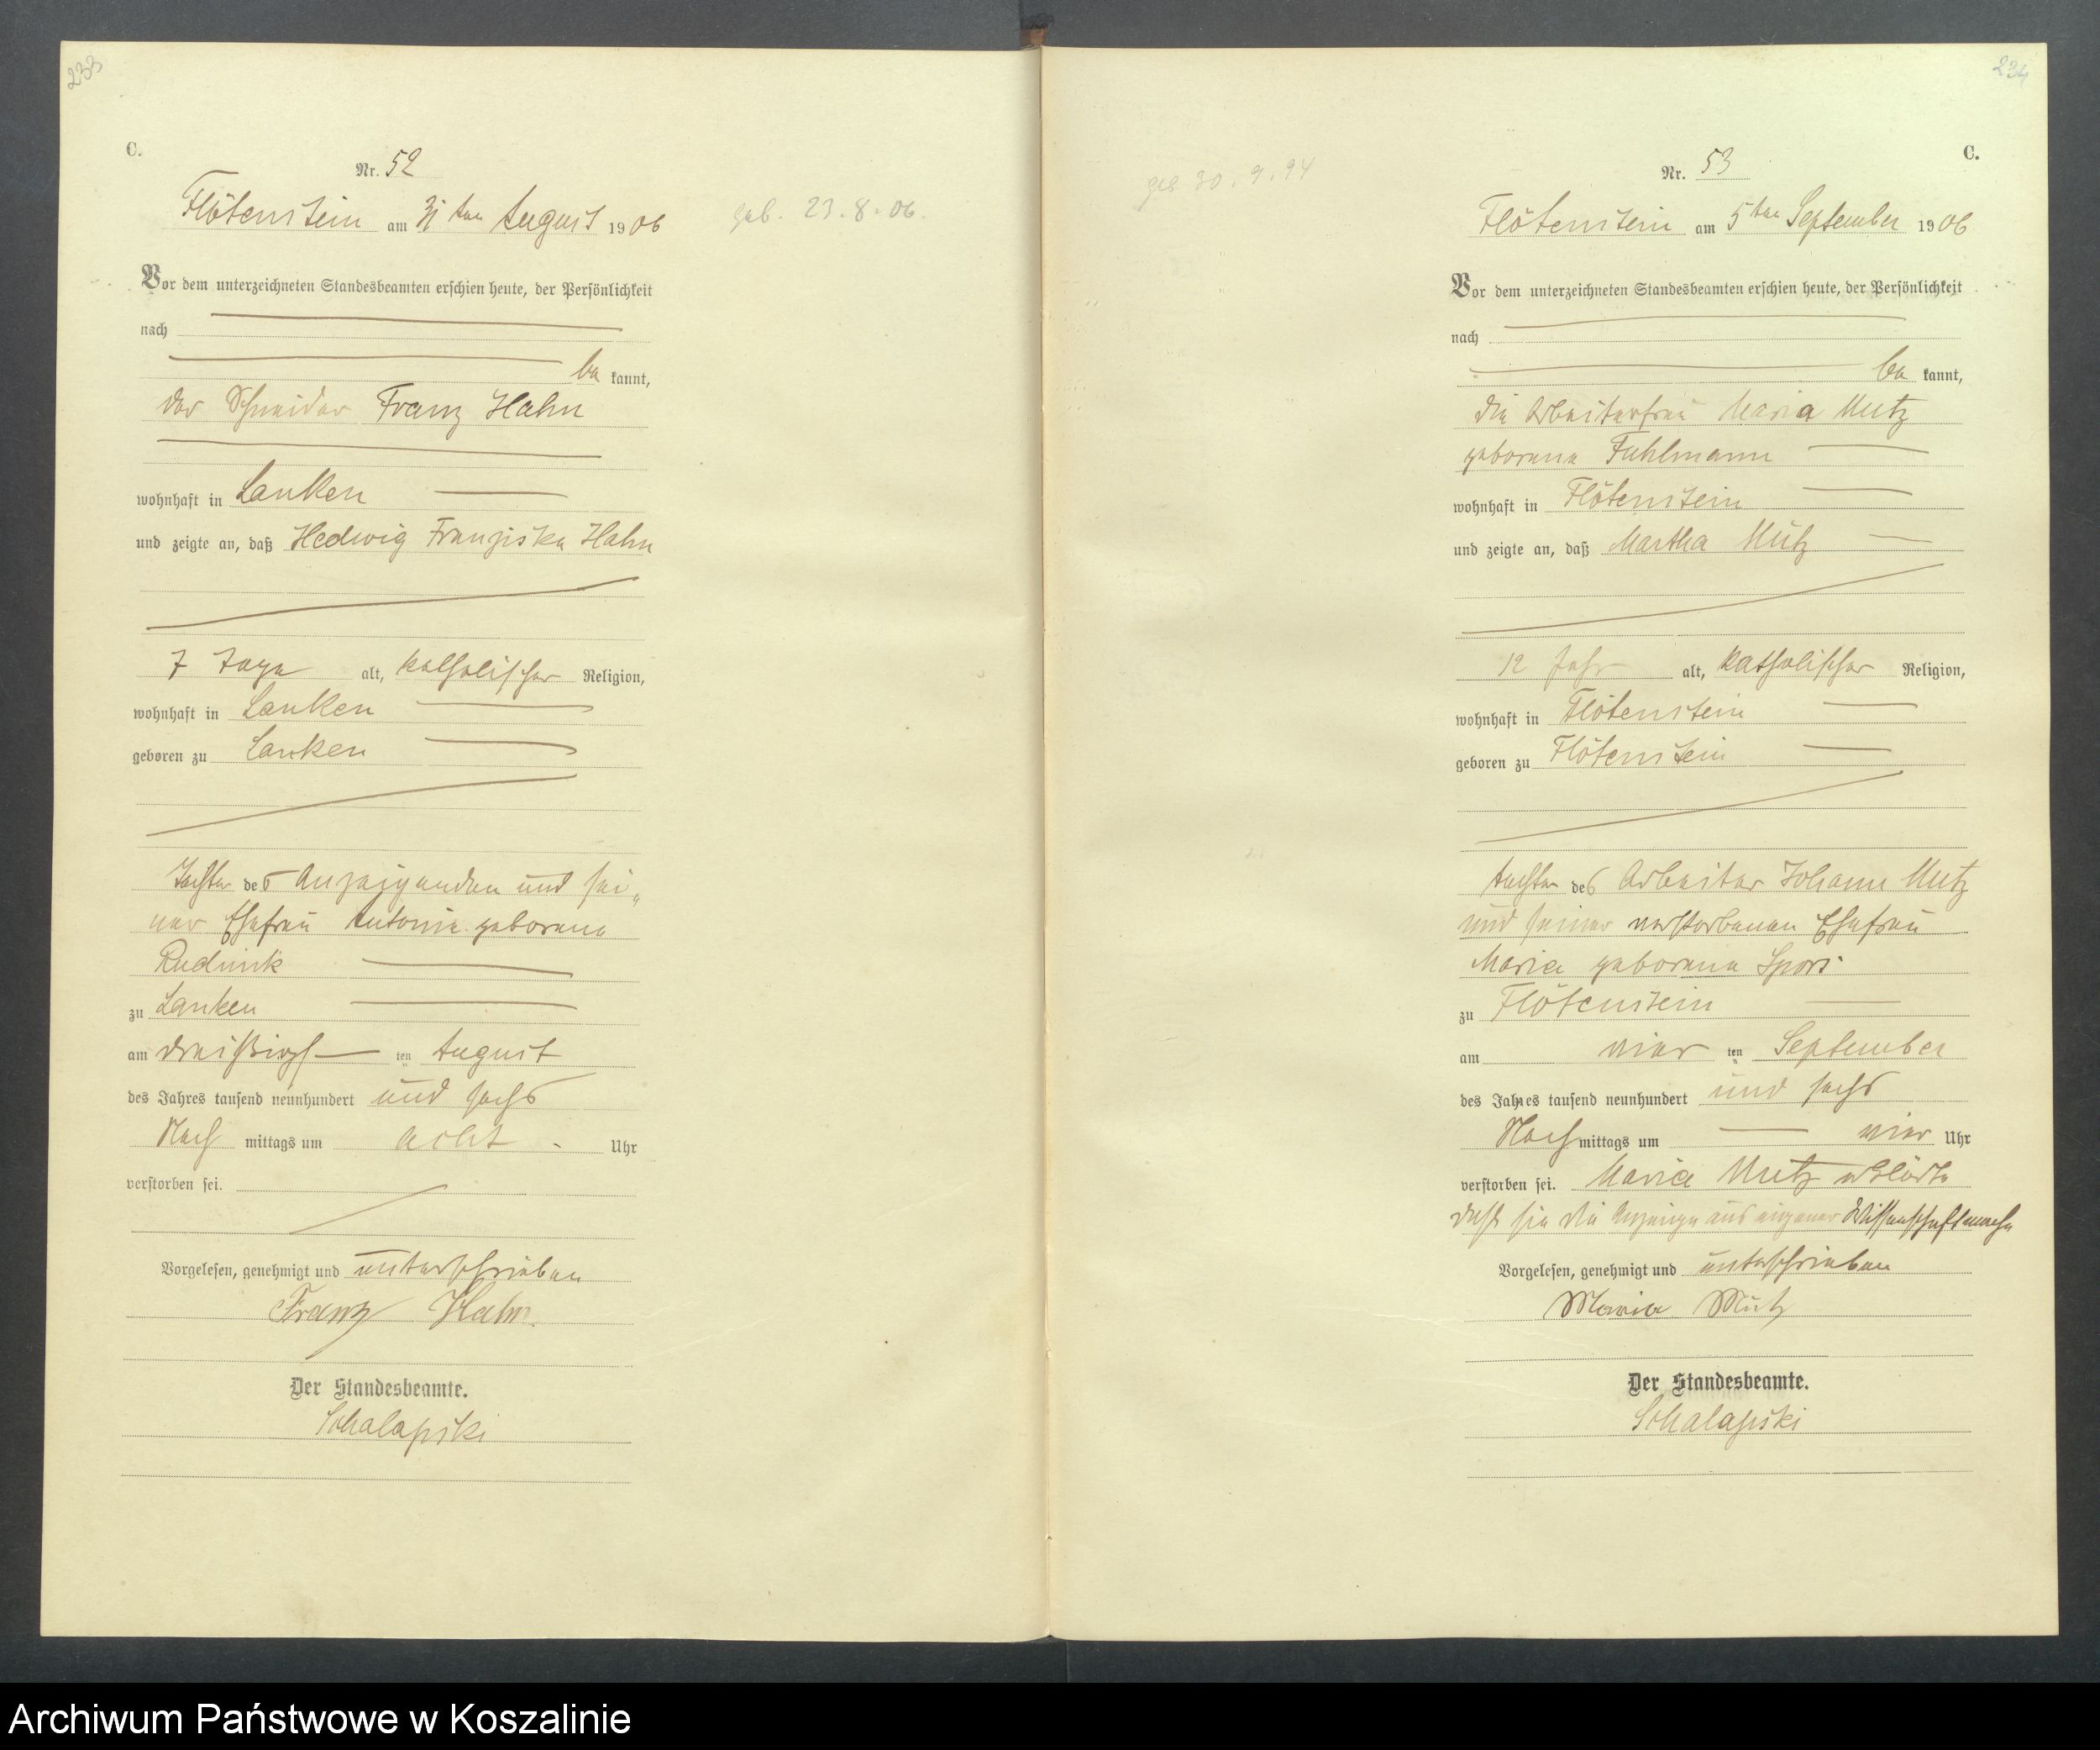 233
C.
Nr. 52
Flötenstein am 31 ten August 1906
geb. 23.8.06.
Vor dem unterzeichneten Standesbeamten erschien heute, der Persönlichkeit
nach
be kannt,
der Schneider Franz Hahn
wohnhaft in Lanken
und zeigte an, daß Hedwig Franziska Hahn
7 Tage alt, katholischer Religion,
wohnhaft in Lanken
geboren zu Lanken
Tochter des Anzeigenden und sei„
ner Ehefrau Antonie geborene
Rudnik
zu Lanken
am dreißigs ten August
des Jahres tausend neunhundert und sechs
Nach mittags um acht Uhr
verstorben sei.
Vorgelesen, genehmigt und unterschrieben
Franz Hahn.
Der Standesbeamte.
Schalapski
234
C.
geb 30.9.94
Nr. 53
Flötenstein am 5ten September 1906
Vor dem unterzeichneten Standesbeamten erschien heute, der Persönlichkeit
nach
be kannt,
die Arbeiterfrau Maria Mutz
geborene Fuhlmann
wohnhaft in Flötenstein
und zeigte an, daß Martha Mütz
12 Jahr alt, katholischer Religion,
wohnhaft in Flötenstein
geboren zu Flötenstein
Tochter des Arbeiter Johann Mutz
und seiner verstorbenen Ehefrau
Maria geborene Spors
zu Flötenstein
am vier ten September
des Jahres tausend neunhundert und sechs
Nach mittags um vier Uhr
verstorben sei. Maria Mutz erklärte
daß sie die Anzeige aus eigener Wissenschaft mache
Vorgelesen, genehmigt und unterschrieben
Maria Mütz
Der Standesbeamte.
Schalapski
Archiwum Państwowe w Koszalinie